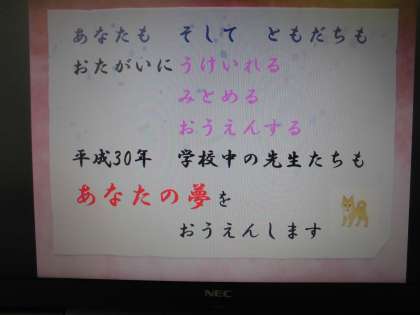 あなたも　そして　ともだちも
おたがいにうけいれる
みとめる
おうえんする
平成30年　学校中の先生たちも
あなたの夢を
おうえんします
NEC